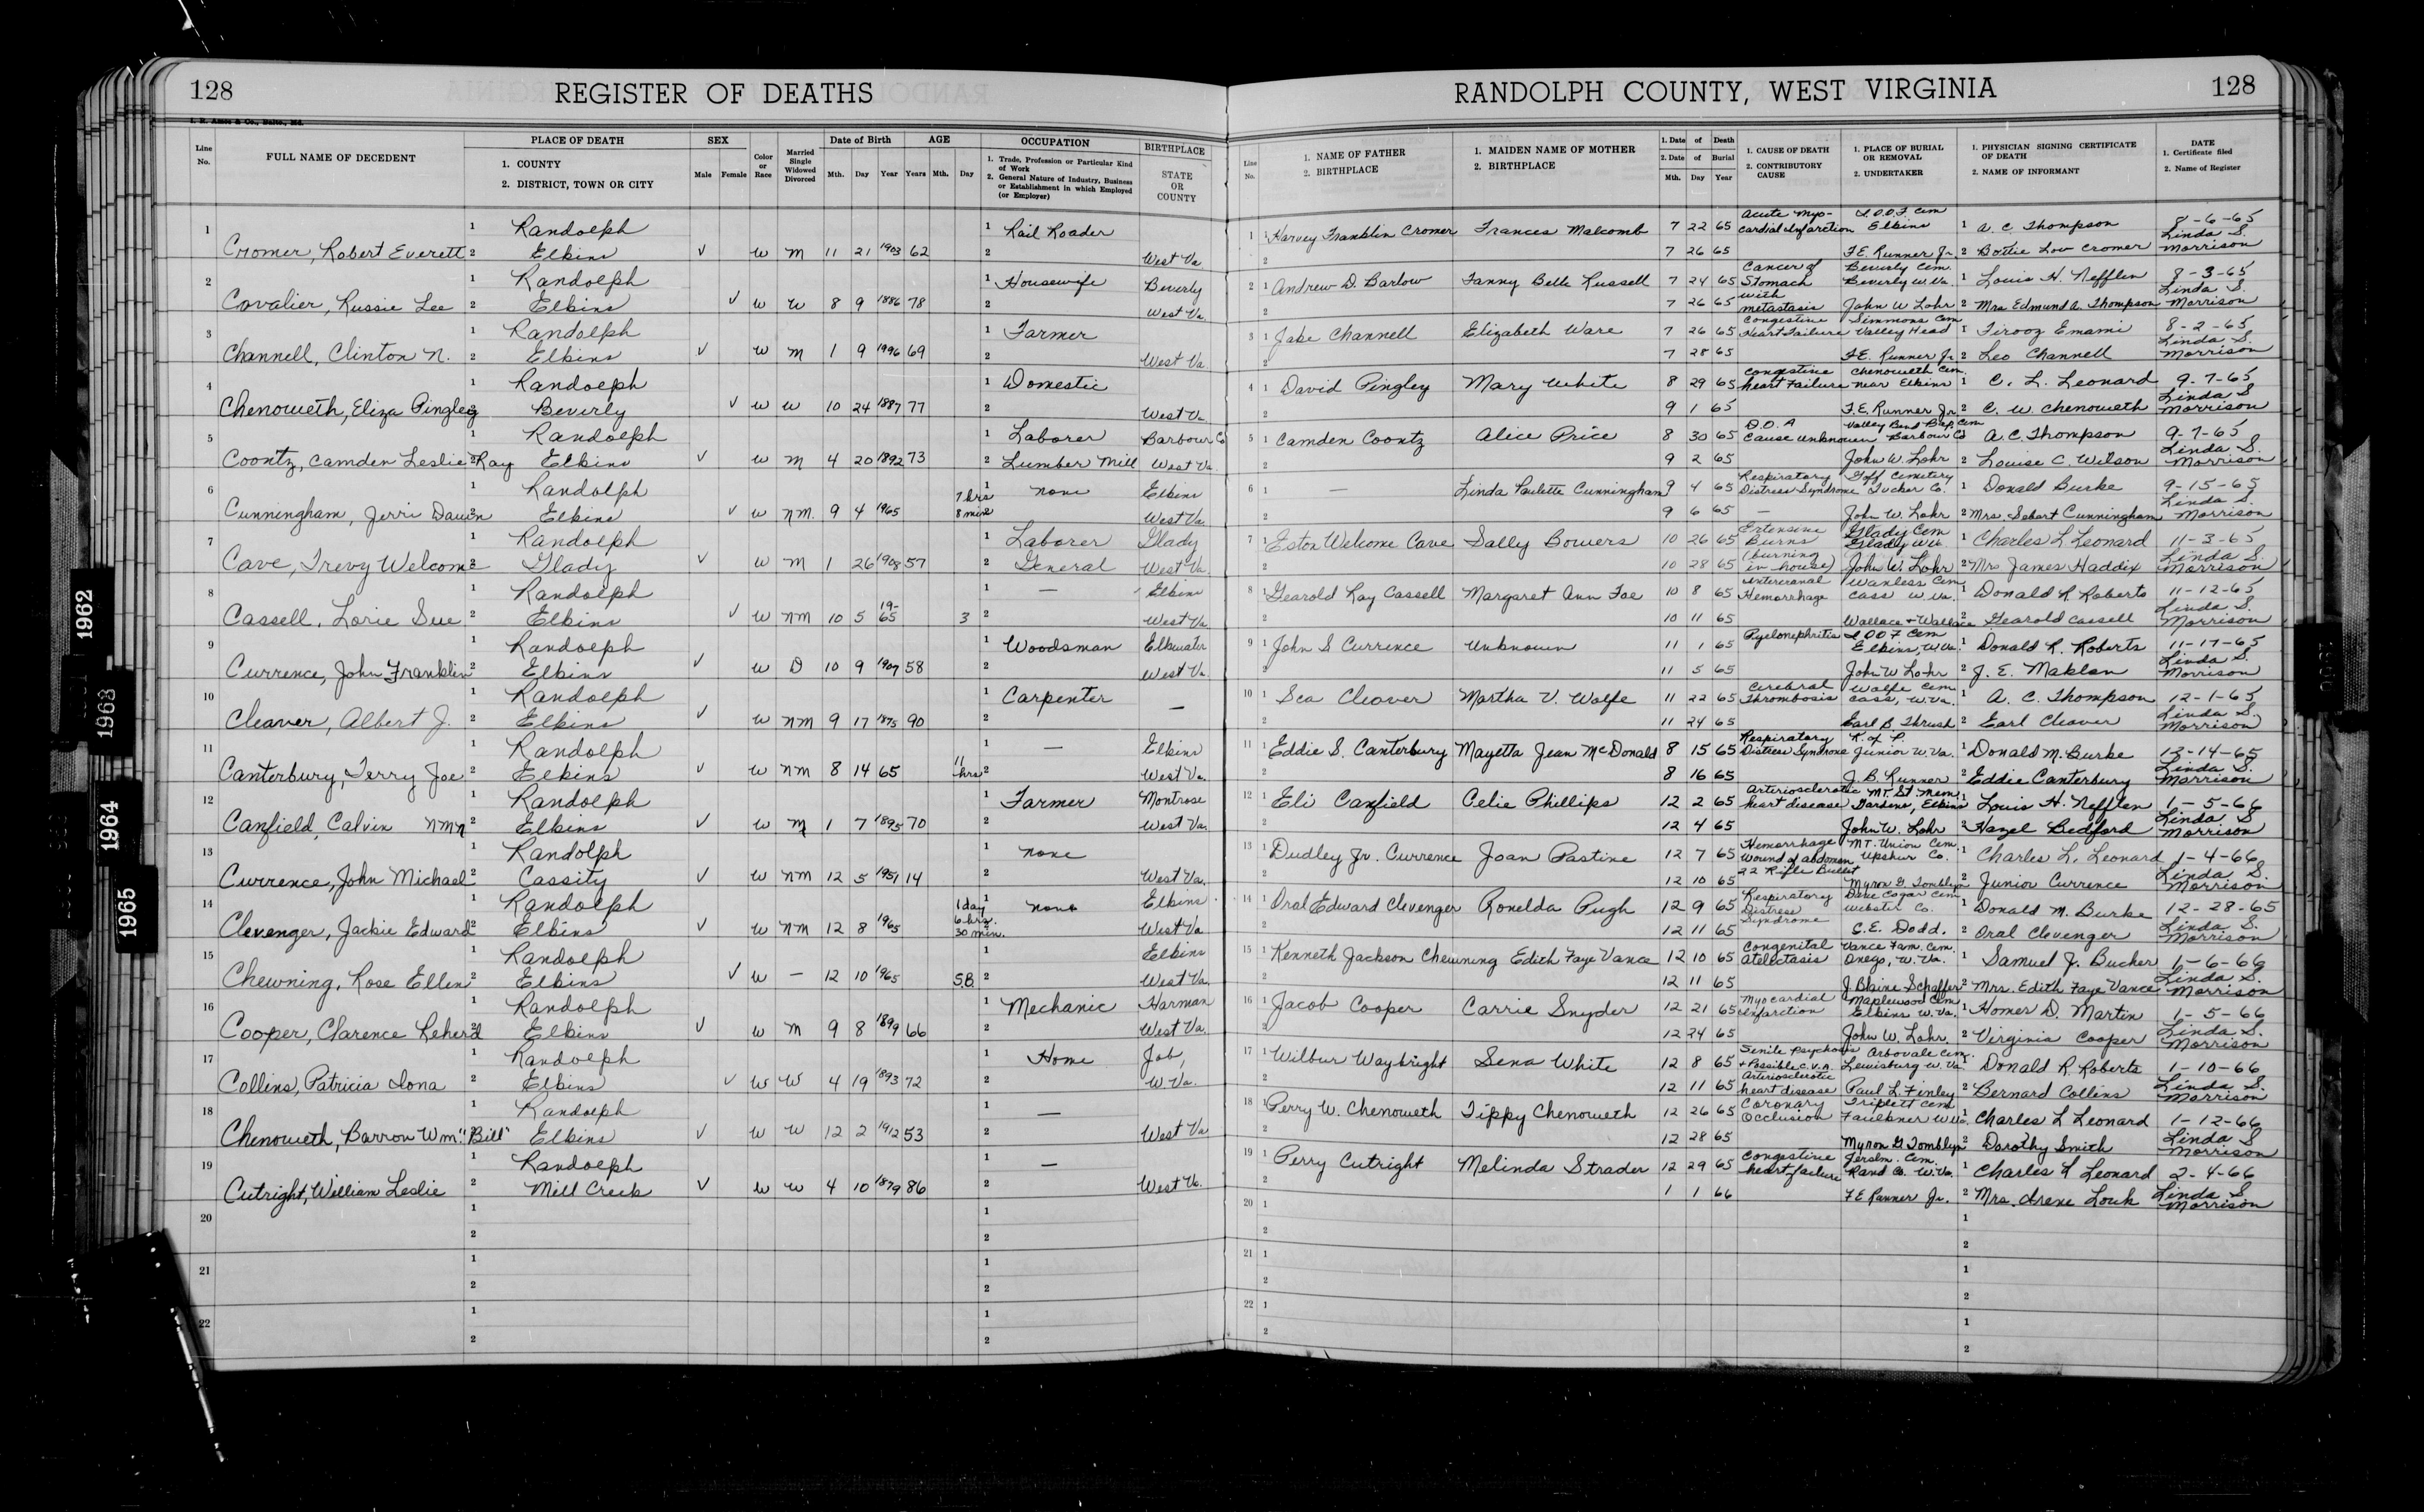 128 REGISTER OF DEATHS
RANDOLPH COUNTY, WEST VIRGINIA 128
Line No. FULL NAME OF DECEDENT PLACE OF DEATH 1. COUNTY 2. DISTRICT, TOWN OR CITY SEX Male Female Color or Race Married Single Widowed Divorced Date of Birth Mth. Day Year AGE Years Mth. Day OCCUPATION 1. Trade, Profession or Particular Kind of Work 2. General Nature of Industry, Business or Establishment in which Employed (or Employer) BIRTHPLACE STATE OR COUNTY
Line No. 1. NAME OF FATHER 2. BIRTHPLACE 1. MAIDEN NAME OF MOTHER 2. BIRTHPLACE 1. Date of Death 2. Date of Burial Mth. Day Year 1. CAUSE OF DEATH 2. CONTRIBUTORY CAUSE 1. PLACE OF BURIAL OR REMOVAL 2. UNDERTAKER 1. PHYSICIAN SIGNING CERTIFICATE OF DEATH 2. NAME OF INFORMANT DATE 1. Certificate filed 2. Name of Register
1 1 Randolph 1 Rail Roader
Cromer, Robert Everett 2 Elkins ✓ W M 11 21 1903 62 2 West Va
2 1 Randolph 1 Housewife Beverly
Cavalier, Russie Lee 2 Elkins ✓ W W 8 9 1886 78 2 West Va.
3 1 Randolph 1 Farmer
Channell, Clinton N. 2 Elkins ✓ W M 1 9 1996 69 2 West Va.
4 1 Randolph 1 Domestic
Chenoweth, Eliza Pingley 2 Beverly ✓ W W 10 24 1887 77 2 West Va.
5 1 Randolph 1 Laborer Barbour Co
Coontz, Camden Leslie Ray 2 Elkins ✓ W M 4 20 1892 73 2 Lumber Mill West Va.
6 1 Randolph 7 hrs 1 none Elkins
Cunningham, Jerri Dawn 2 Elkins ✓ W nm. 9 4 1965 8 min 2 West Va
7 1 Randolph 1 Laborer Glady
Cave, Trevy Welcom 2 Glady ✓ W M 1 26 1908 57 2 General West Va.
8 1 Randolph 1 — Elkins
Cassell, Lorie Sue 2 Elkins ✓ W nm 10 5 19-65 3 2 West Va
9 1 Randolph 1 Woodsman Elkwater
Currence, John Franklin 2 Elkins ✓ W D 10 9 1907 58 2 West Va.
10 1 Randolph 1 Carpenter
Cleaver, Albert J. 2 Elkins ✓ W nm 9 17 1875 90 2 —
11 1 Randolph 1 — Elkins
Canterbury, Terry Joe 2 Elkins ✓ W nm 8 14 65 11 hrs 2 West Va.
12 1 Randolph 1 Farmer Montrose
Canfield, Calvin nmn 2 Elkins ✓ W M 1 7 1895 70 2 West Va.
13 1 Randolph 1 none
Currence, John Michael 2 Cassity ✓ W nm 12 5 1951 14 2 West Va.
14 1 Randolph 1 day 1 none Elkins
Clevenger, Jackie Edward 2 Elkins ✓ W nm 12 8 1965 6 hrs. 30 min. West Va
15 1 Randolph 1 Elkins
Chewning, Rose Ellen 2 Elkins ✓ W — 12 10 1965 S.B. 2 West Va.
16 1 Randolph 1 Mechanic Harman
Cooper, Clarence Leherd 2 Elkins ✓ W M 9 8 1899 66 2 West Va.
17 1 Randolph 1 Home Job,
Collins, Patricia Iona 2 Elkins ✓ W W 4 19 1893 72 2 W. Va.
18 1 Randolph 1 —
Chenoweth, Barron Wm. "Bill" 2 Elkins ✓ W W 12 2 1912 53 2 West Va
19 1 Randolph 1 —
Cutright, William Leslie 2 Mill Creek ✓ W W 4 10 1879 86 2 West Va.
20 1 1
2 2
21 1 1
2 2
22 1 1
2 2
1 1 Harvey Franklin Cromer Frances Malcomb 7 22 65 Acute Myocardial Infarction I.O.O.F. Cem Elkins 1 A. C. Thompson 8-6-65
2 7 26 65 F.E. Runner Jr. 2 Bottie Lou Cromer Linda S. Morrison
2 1 Andrew D. Barlow Fanny Belle Russell 7 24 65 Cancer of Stomach with metastasis Beverly Cem. Beverly W.Va. 1 Louis H. Nefflen 8-3-65
2 7 26 65 John W Lohr 2 Mrs. Edmund A. Thompson Linda S. Morrison
3 1 Jake Channell Elizabeth Ware 7 26 65 Congestive Heart Failure Simmons Cem Valley Head 1 Firooz Emami 8-2-65
2 7 28 65 F.E. Runner Jr 2 Leo Channell Linda S. Morrison
4 1 David Pingley Mary White 8 29 65 Congestive heart Failure Chenoweth Cem. near Elkins 1 C. L. Leonard 9-7-65
2 9 1 65 F.E. Runner Jr 2 C. W. Chenoweth Linda S Morrison
5 1 Camden Coontz Alice Price 8 30 65 D.O.A Cause unknown Valley Bend Bap. Cem Barbour Co A. C. Thompson 9-7-65
2 9 2 65 John W. Lohr 2 Louise C. Wilson Linda S. Morrison
6 1 — Linda Paulette Cunningham 9 4 65 Respiratory Distress Syndrome Goff Cemetery Tucker Co. 1 Donald Burke 9-15-65
2 9 6 65 — John W. Lohr 2 Mrs. Sebert Cunningham Linda S. Morrison
7 1 Eston Welcome Cave Sally Bowers 10 26 65 Extensive Burns (burning in house) Glady Cem Glady W.Va. 1 Charles L Leonard 11-3-65
2 10 28 65 John W. Lohr 2 Mrs James Haddix Linda S. Morrison
8 1 Gearold Ray Cassell Margaret Ann Foe 10 8 65 Intercranal Hemorrhage Wanless Cem. Cass W.Va. 1 Donald R Roberts 11-12-65
2 10 11 65 Wallace + Wallace 2 Gearold Cassell Linda S. Morrison
9 1 John S Currence Unknown 11 1 65 Pyelonephritis I O O F Cem Elkins, W.Va. 1 Donald R. Roberts 11-17-65
2 11 5 65 John W Lohr 2 J. E. Maklan Linda S. Morrison
10 1 Sca Cleaver Martha V. Wolfe 11 22 65 Cerebral Thrombosis Wolfe Cem Cass, W.Va. 1 A. C. Thompson 12-1-65
2 11 24 65 Earl B Thrush 2 Earl Cleaver Linda S. Morrison
11 1 Eddie S. Canterbury Mayetta Jean McDonald 8 15 65 Respiratory Distress Syndrome K. of P. Junior W.Va. 1 Donald M. Burke 12-14-65
2 8 16 65 J. B. Runner 2 Eddie Canterbury Linda S. Morrison
12 1 Eli Canfield Celie Phillips 12 2 65 Arteriosclerotic heart disease MT. St Mem. Gardens, Elkins 1 Louis H. Nefflen 1-5-66
2 12 4 65 John W. Lohr 2 Hazel Bedford Linda S Morrison
13 1 Dudley Jr. Currence Joan Pastine 12 7 65 Hemorrhage Wound of abdomen 22 Rifle Bullet MT. Union Cem. Upshur Co. 1 Charles L. Leonard 1-4-66
2 12 10 65 Myron G. Tomblyn 2 Junior Currence Linda S. Morrison
14 1 Oral Edward Clevenger Ronelda Pugh 12 9 65 Respiratory Distress Syndrome Dave Cogar Cem Webster Co. 1 Donald M. Burke 12-28-65
2 12 11 65 C.E. Dodd. 2 Oral Clevenger Linda S. Morrison
15 1 Kenneth Jackson Chewning Edith Faye Vance 12 10 65 Congenital atelectasis Vance Fam. Cem. Onego, W.Va. 1 Samuel J. Bucher 1-6-66
2 12 11 65 J. Blaine Schaffer 2 Mrs. Edith Faye Vance Linda S. Morrison
16 1 Jacob Cooper Carrie Snyder 12 21 65 Myocardial infarction Maplewood Cem Elkins W.Va. 1 Homer D. Martin 1-5-66
2 12 24 65 John W. Lohr. 2 Virginia Cooper Linda S. Morrison
17 1 Wilbur Waybright Sena White 12 8 65 Senile Psychosis + Possible C.V.A. Arteriosclerotic heart disease Arbovale Cem. Lewisburg W.Va. Donald R. Roberts 1-10-66
2 12 11 65 Paul L. Finley 2 Bernard Collins Linda S. Morrison
18 1 Perry W. Chenoweth Tippy Chenoweth 12 26 65 Coronary Occlusion Triplett Cem Faulkner W.Va. 1 Charles L Leonard 1-12-66
2 12 28 65 Myron G Tomblyn 2 Dorothy Smith Linda S Morrison
19 1 Perry Cutright Melinda Strader 12 29 65 Congestive heart failure Jerslm. Cem. Rand Co. W.Va. 1 Charles L Leonard 2-4-66
2 1 1 66 F E Runner Jr. 2 Mrs. Irene Louk Linda S. Morrison
20 1 1
2 2
21 1 1
2 2
22 1 1
2 2
1962
1963
1964
1965